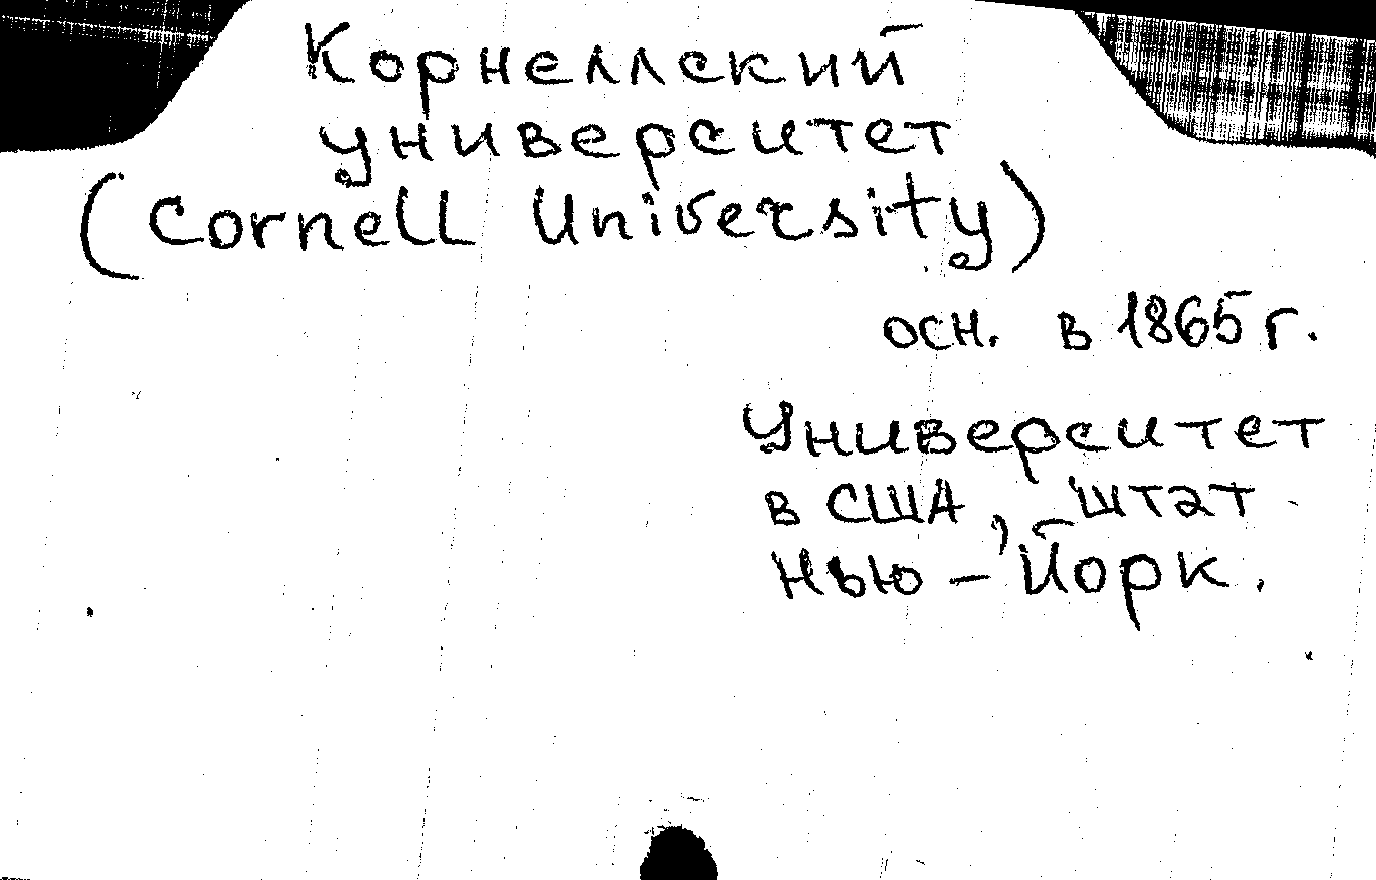 Корнеллский
университет
(Cornell University)
осн. в 1865 г.
Университет
в США, штат
Нью-Йорк.